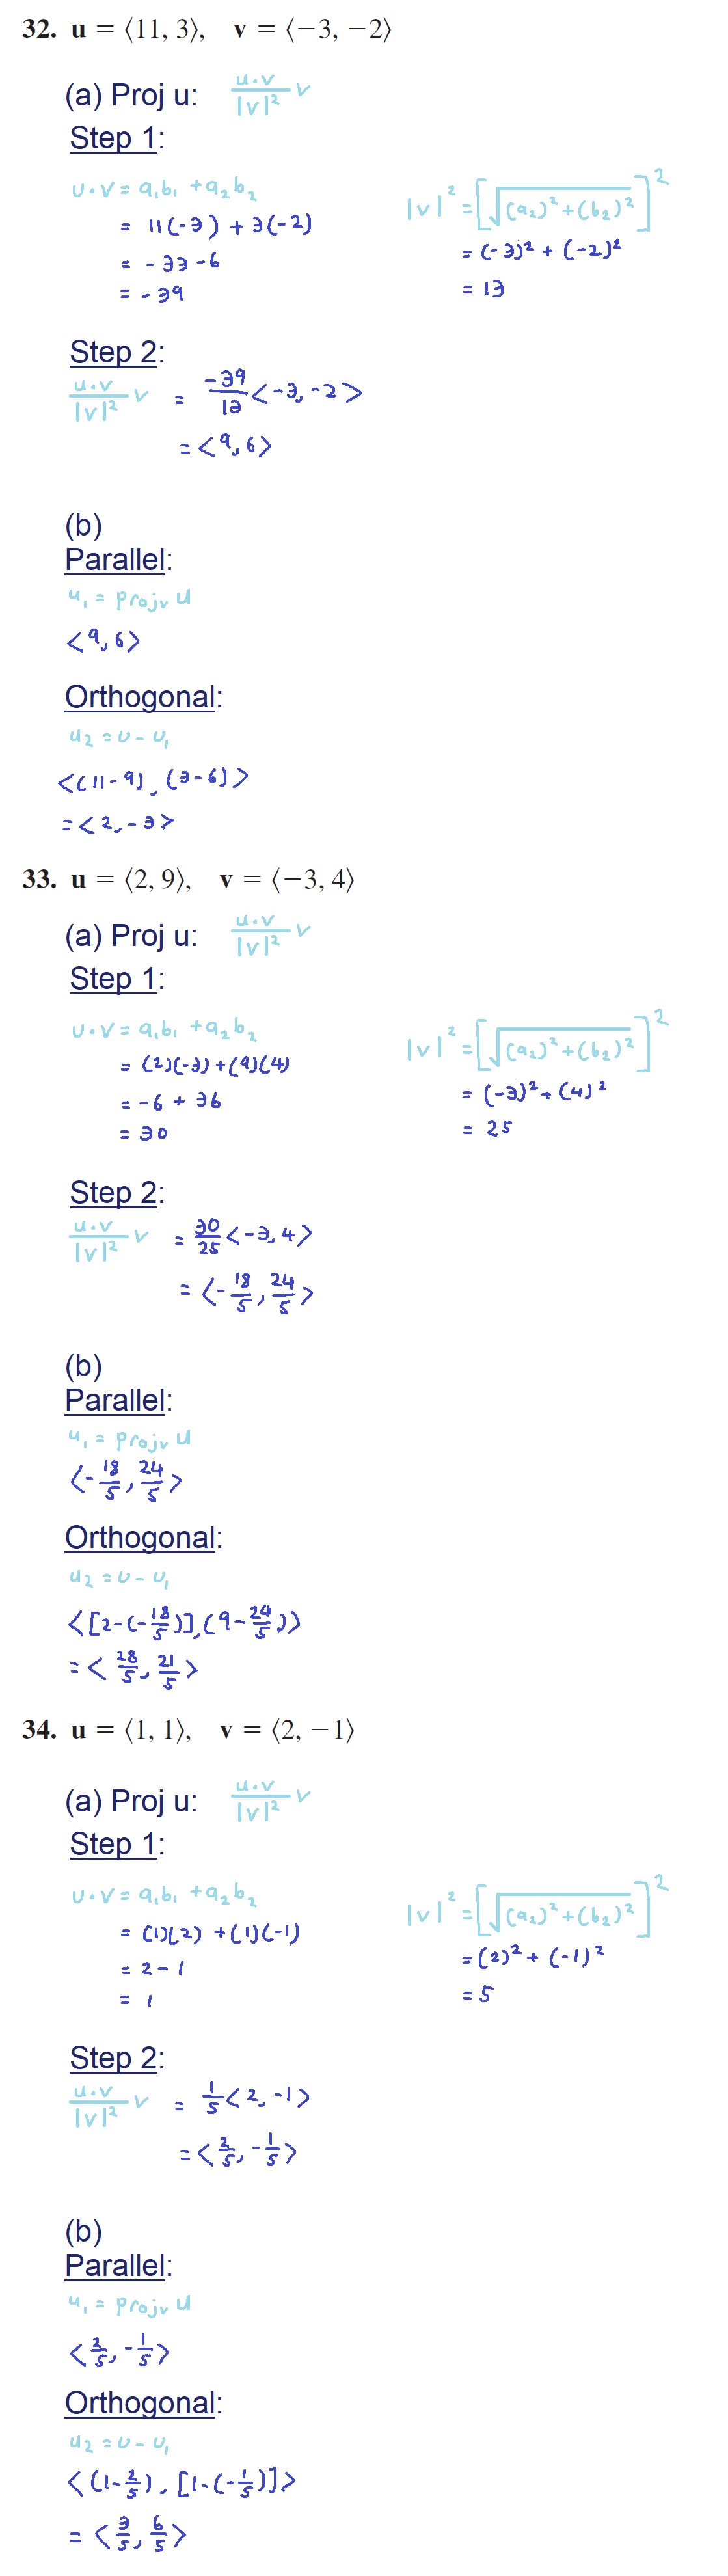 32. u = ⟨11, 3⟩, v = ⟨−3, −2⟩
(a) Proj u: u·v/|v|² v
Step 1:
u·v = a₁b₁ + a₂b₂
= 11(-3) + 3(-2)
= -33 - 6
= -39
|v|² = [√(a₂)² + (b₂)²]²
= (-3)² + (-2)²
= 13
Step 2:
u·v/|v|² v = -39/13 <-3, -2>
= <9, 6>
(b)
Parallel:
u₁ = projᵥ u
<9, 6>
Orthogonal:
u₂ = u - u₁
<(11-9), (3-6)>
= <2, -3>
33. u = ⟨2, 9⟩, v = ⟨−3, 4⟩
(a) Proj u: u·v/|v|² v
Step 1:
u·v = a₁b₁ + a₂b₂
= (2)(-3) + (9)(4)
= -6 + 36
= 30
|v|² = [√(a₂)² + (b₂)²]²
= (-3)² + (4)²
= 25
Step 2:
u·v/|v|² v = 30/25 <-3, 4>
= <-18/5, 24/5>
(b)
Parallel:
u₁ = projᵥ u
<-18/5, 24/5>
Orthogonal:
u₂ = u - u₁
<[2-(-18/5)], (9-24/5)>
= <28/5, 21/5>
34. u = ⟨1, 1⟩, v = ⟨2, −1⟩
(a) Proj u: u·v/|v|² v
Step 1:
u·v = a₁b₁ + a₂b₂
= (1)(2) + (1)(-1)
= 2 - 1
= 1
|v|² = [√(a₂)² + (b₂)²]²
= (2)² + (-1)²
= 5
Step 2:
u·v/|v|² v = 1/5 <2, -1>
= <2/5, -1/5>
(b)
Parallel:
u₁ = projᵥ u
<2/5, -1/5>
Orthogonal:
u₂ = u - u₁
<(1-2/5), [1-(-1/5)]>
= <3/5, 6/5>